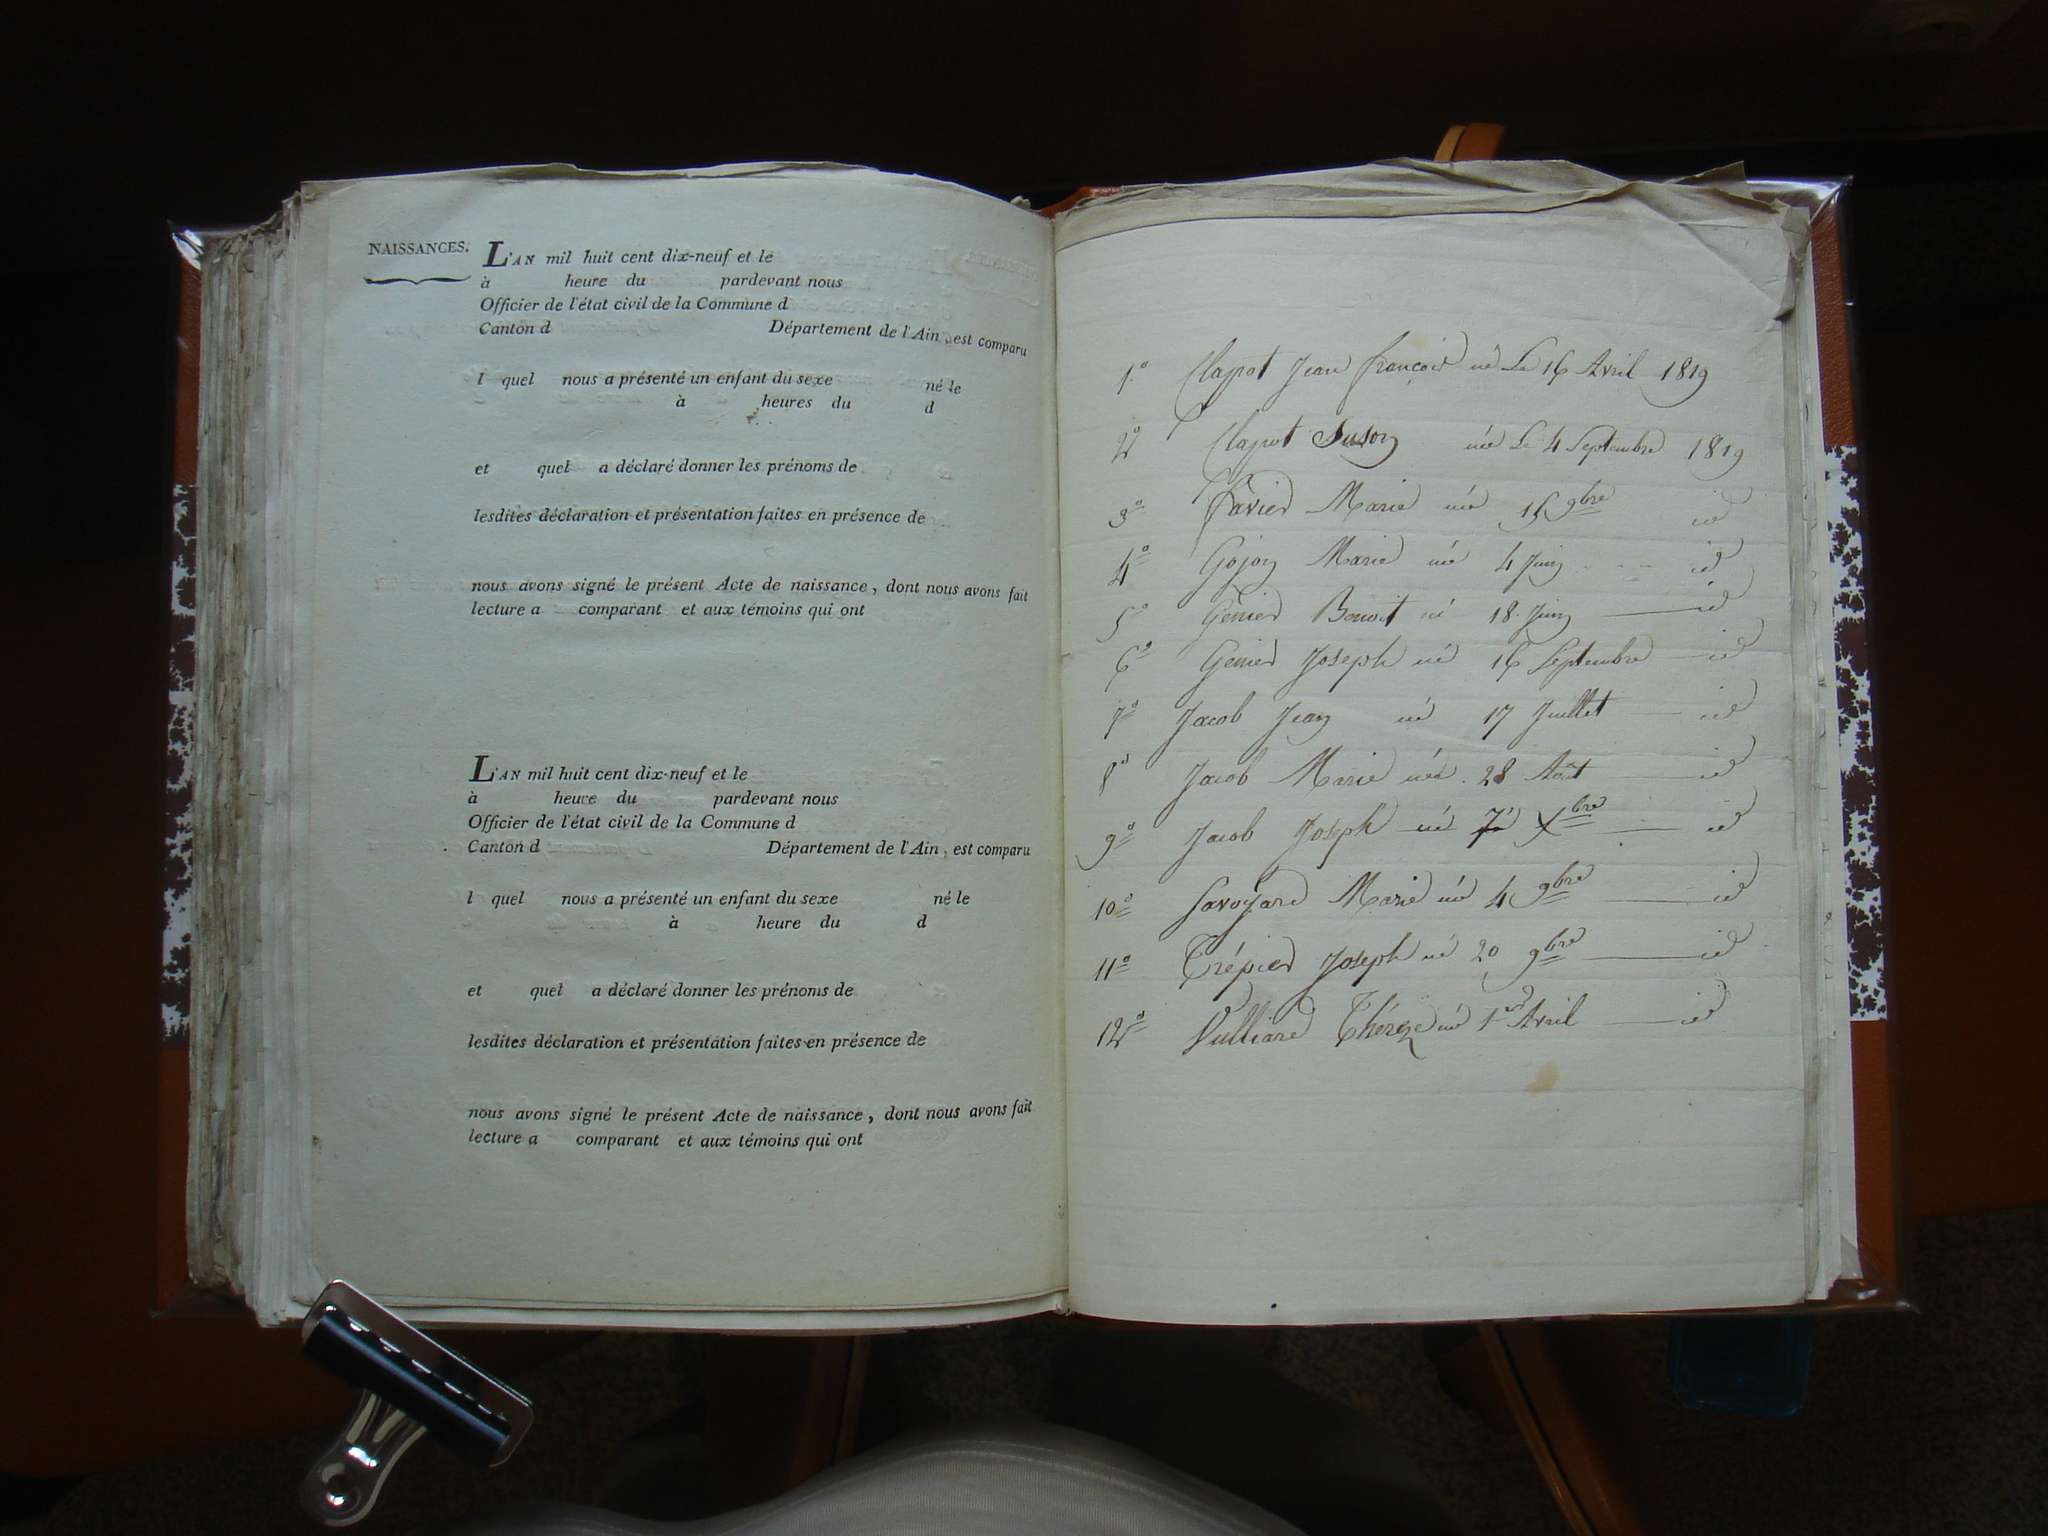 NAISSANCES.
L'AN mil huit cent dix-neuf et le
à heure du pardevant nous
Officier de l'état civil de la Commune d
Canton d Département de l'Ain, est comparu
l quel nous a présenté un enfant du sexe né le
à heures du d
et quel a déclaré donner les prénoms de
lesdites déclaration et présentation faites en présence de
nous avons signé le présent Acte de naissance, dont nous avons fait
lecture a comparant et aux témoins qui ont
L'AN mil huit cent dix-neuf et le
à heure du pardevant nous
Officier de l'état civil de la Commune d
Canton d Département de l'Ain, est comparu
l quel nous a présenté un enfant du sexe né le
à heure du d
et quel a déclaré donner les prénoms de
lesdites déclaration et présentation faites en présence de
nous avons signé le présent Acte de naissance, dont nous avons fait
lecture a comparant et aux témoins qui ont
1.º Clapot Jean françois né Le 16 Avril 1819
2º Clapot Suson née Le 4 Septembre 1819
3º favier Marie née 15 9bre id
4º Gojon Marie née 4 Juin id
5º Génier Benoit né 18 Juin id
6º Genier Joseph né 16 Septembre id
7º Jacob Jean né 17 Juillet id
8º Jacob Marie née 28 Août id
9º Jacob Joseph né 7 Xbre id
10º Savoyard Marie née 4 9bre id
11º Trépier Joseph né 20 9bre id
12º Vulliard Thérèze née 1er Avril id